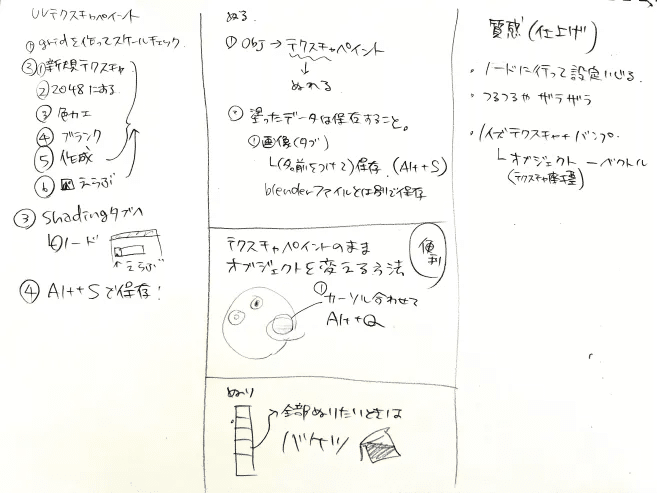 UVテクスチャペイント
① gridを作ってスケールチェック
② ①新規テクスチャ
② 2048にする
③ 色カエ
④ ブランク
⑤ 作成
⑥ えらぶ
③ Shadingタブへ
ノード
えらぶ
④ Alt+Sで保存!
ぬる
① Obj→テクスチャペイント
↓
ぬれる
② 塗ったデータは保存すること。
①画像(タブ)
└(名前をつけて)保存.(Alt+S)
blenderファイルとは別で保存
テクスチャペイントのまま
オブジェクトを変える方法
便利
① カーソル合わせて
Alt+Q
ぬり
全部ぬりたいときは
バケツ
質感(仕上げ)
・ノードに行って設定いじる.
・つるつるや ザラザラ
・ノイズテクスチャ+バンプ.
└オブジェクト ー ベクトル
(テクスチャ座標)